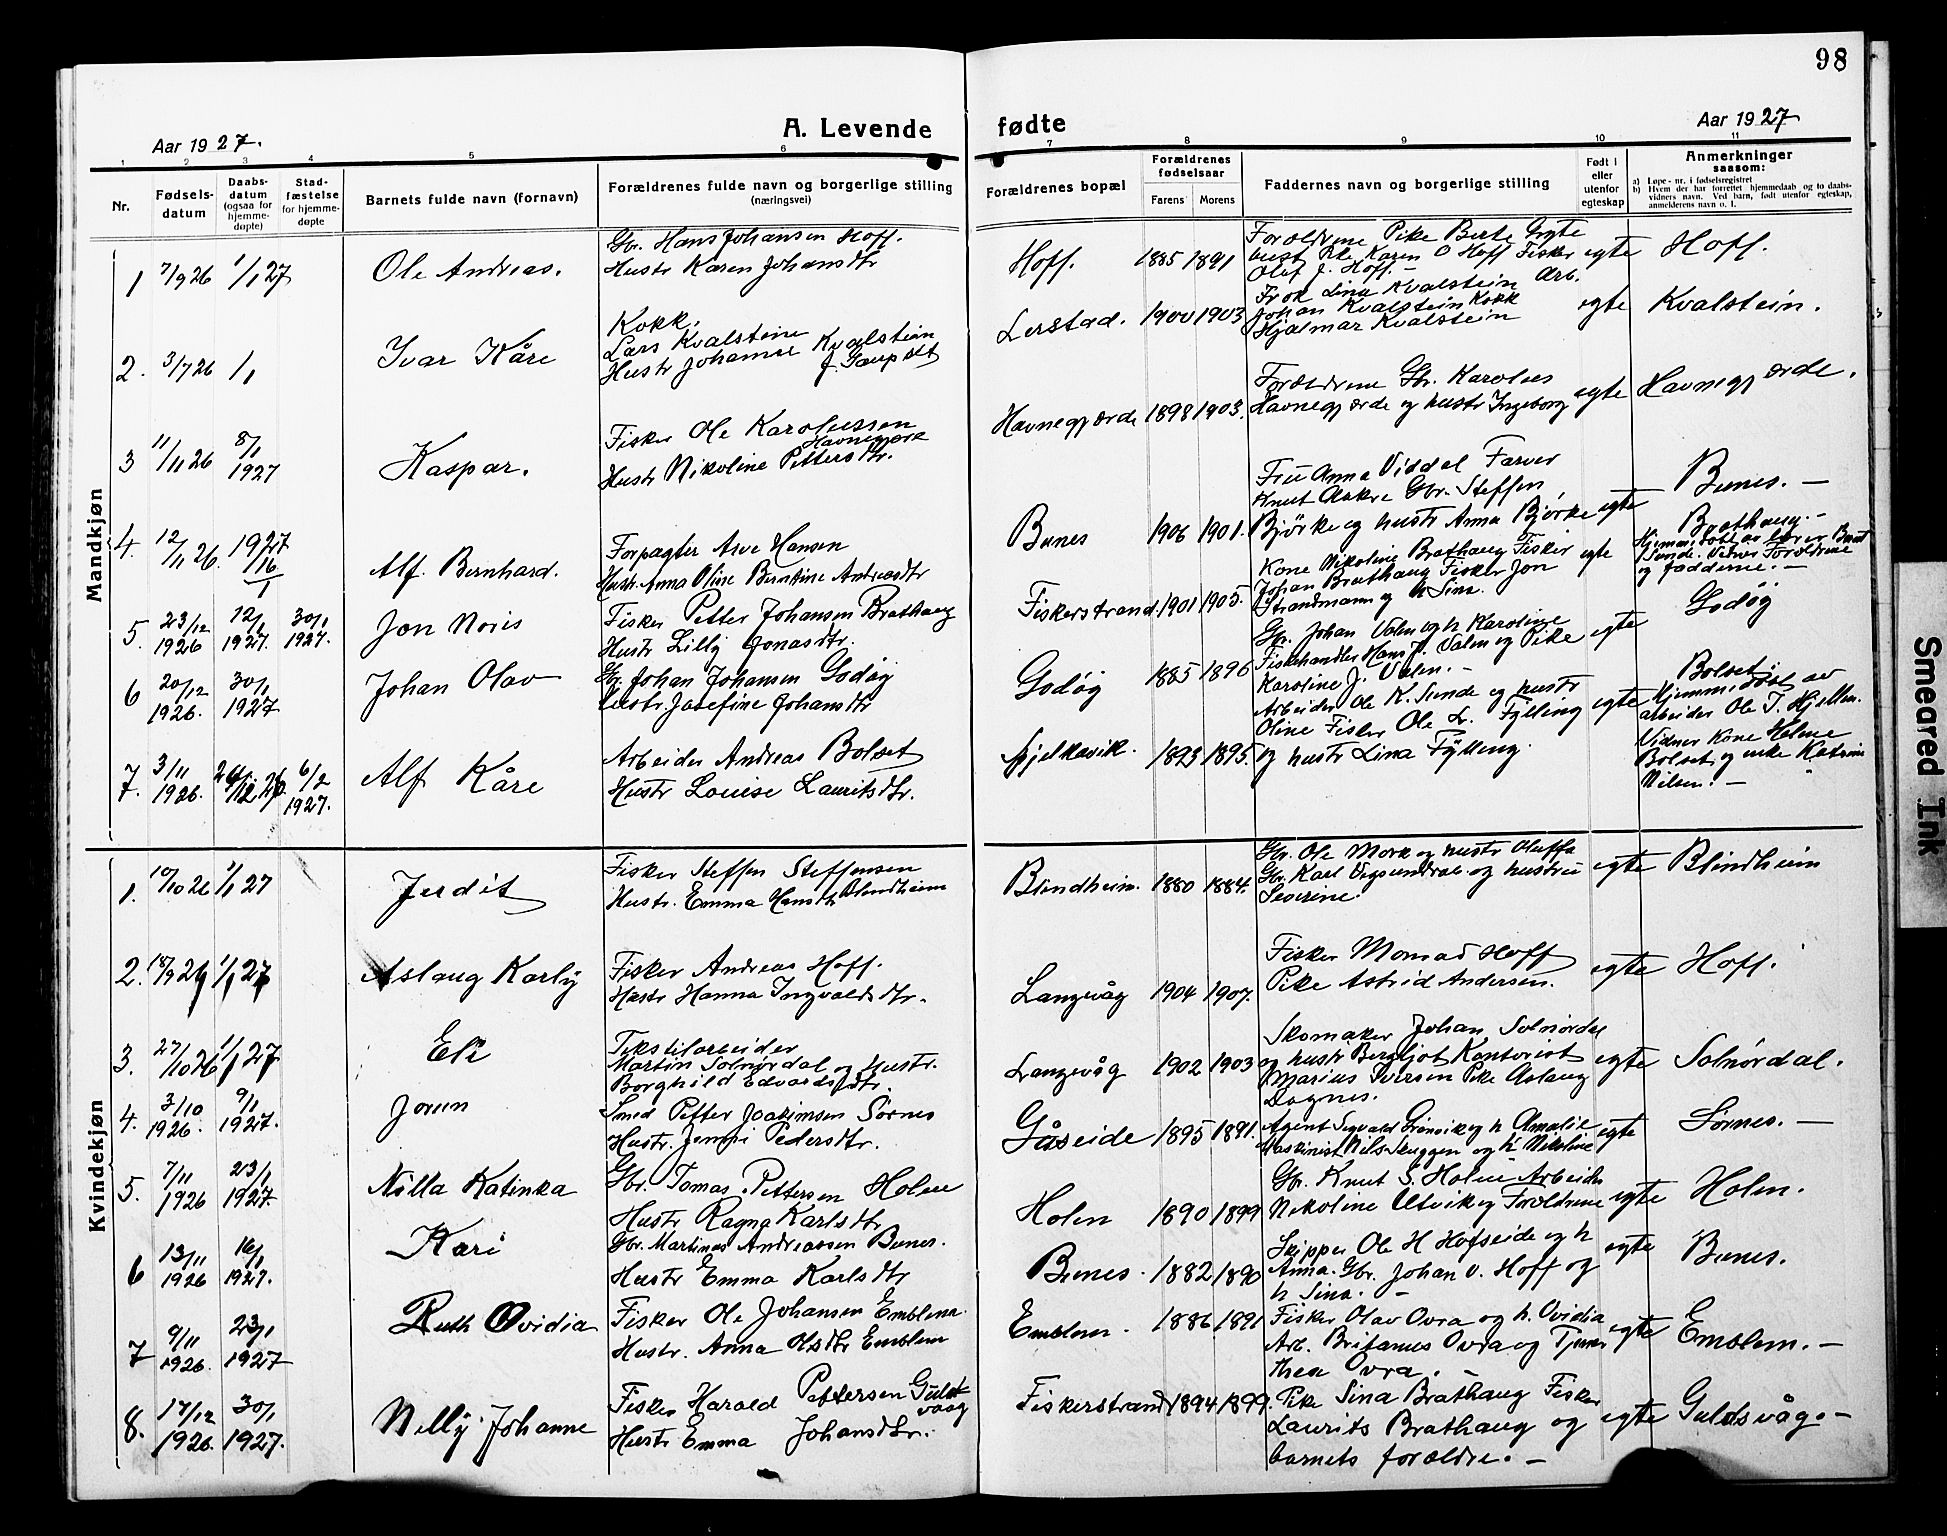 98
A. Levende fødte
Aar 1927.
Aar 1927
1 2 3 4 5 6 7 8 9 10 11
Nr.
Fødsels-
datum
Daabs-
datum
(ogsaa for
hjemme-
døpte)
Stad-
fæstelse
for hjemme-
døpte
Barnets fulde navn (fornavn)
Forældrenes fulde navn og borgerlige stilling
(næringsvei)
Forældrenes bopæl
Forældrenes
fødselsaar
Farens Morens
Faddernes navn og borgerlige stilling
Født i
eller
utenfor
egteskap
Anmerkninger
saasom:
a) Løpe-nr. i fødselsregistret
b) Hvem der har forrettet hjemmedaab og to daabs-
vidners navn. Ved barn, født utenfor egteskap,
anmelderens navn o. l.
Mandkjøn
1 7/9 26 1/1 27
Ole Andreas.
Gbr. Hans Johansen Hoff.
Hustr Karen Johansdtr
Hoff. 1885 1891
Forældrene Pike Berte
Pike Karen O Hoff Fisker
Olef J. Hoff. -
egte
Hoff.
2. 3/7 26 1/1
Ivar Kåre
Kokk.
Lars Kvalstein
Hustr Johanne Kvalstein
Lerstad. 1900 1903
Frøk Lina Kvalstein Arb.
Johan Kvalstein Kokk
Hjalmar Kvalstein
egte
Kvalstein.
3 11/11 26 8/1
1927
Kaspar.
Fisker Ole Karolussen
Havnegjære
Hustr Nikoline Pettersdtr.
Havnegjærde 1898 1903.
Forældrene Gbr. Karolus
Havnegjærde og hustr Ingeborg
egte
Havnegjærde.
4. 12/11 26. 1927
16/1
Alf. Bernhard.
Forpagter Arve Hansen
Hustr. Anna Oline Berntine Andreasdtr
Bunes 1906 1901.
Fru Anna Viddal Farver
Knut Aakre Gbr. Steffen
Bjørke og hustr Anna Bjørke
egte
Bunes. -
5. 23/12
1926
12/1
1927.
30/1
1927.
Jon Noris
Fisker Petter Johansen Brathaug
Hustr Lilly Jonasdtr.
Fiskerstrand 1901 1905.
Kone Nikoline Brathaug Fisker
Johan Brathaug Fisker Jon
Strandmann og h Sina.
egte
Brathaug. -
Hjemmedøbt av lærer
Sunde. Vidner Forældrene
og fadderne. -
6 20/12
1926.
30/1
1927
Johan Olav
Gbr. Johan Johansen Godøy
Hustr. Josefine Johansdtr
Godøy 1885 1896
Gbr. Johan Valen og h Karoline
Fiskehandler Hans J. Valen og Pike
Karoline J. Valen. -
egte
Godøy
7. 3/11
1926.
6/2
1927.
Alf Kåre
Arbeider Andreas Bolset
Hustr Louise Lauritsdtr.
Spjelkavik. 1893 1895.
Arbeider Ole K. Sunde og hustr
Oline Fisker Ole L. Fylling
og hustr Lina Fylling.
egte
Bolset
Hjemmedøbt av
arbeider Ole T. Hjellen.
Vidner Kone Helene
Bolset og enke Katrine
Nilsen. -
Kvindekjøn
1. 10/10 26 1/1 27
Judit
Fisker Steffen Steffensen
Hustr. Emma Hansdtr Blindheim
Blindheim. 1880 1884.
Gbr. Ole Mork og hustr Oluffa
Gbr. Karl Vegsundvåg og hustru
Severine.
egte
Blindheim
2. 18/9 26 1/1 27
Aslaug Karly
Fisker Andreas Hoff.
Hustr Hanna Ingvaldsdtr.
Langevåg 1904 1907.
Fisker Monrad Hoff
Pike Astrid Andersen.
egte
Hoff.
3. 27/10 26 1/1 27
Eli
Tekstilarbeider
Martin Solnørdal og Hustr.
Borghild Edvardsdtr.
Langevåg 1902 1903
Skomaker Johan Solnørdal
og hustr Bergljot Kontorist
Marius Iversen Pike Aslaug
Dagnes.
egte
Solnørdal.
4. 3/10
1926.
9/1
1927.
Jorun
Smed Petter Joakimsen Sørnes
Hustr. Jenni Pedersdtr.
Gåseide 1895 1891.
Agent Sigvald Grønvik og h Amalie
Maskinist Nils Skuggen og h Nikoline
egte
Sørnes. -
5. 7/11
1926
23/1
1927.
Nilla Katinka
Gbr. Tomas Pettersen Holen
Hustr Ragna Karlsdtr
Holen 1890 1899
Gbr. Knut S. Holen Arbeider
Nikoline Utvik og Forældrene
egte
Holen.
6 13/11
1926
16/1
1927.
Kari
Gbr. Martinus Andreassen Bunes.
Hustr Emma Karlsdtr
Bunes. 1882 1890
Skipper Ole H Hofseide og h
Anna. Gbr. Johan O. Hoff og
h Sina. -
egte
Bunes.
7 9/11
1926.
23/1
1927
Ruth Ovidia
Fisker Ole Johansen Emblem
Hustr. Anna Olsdtr Emblem
Emblem. 1886 1891
Fisker Olav Ovra og h. Ovidia
Arb. Britanus Ovra og
thea Ovra. -
egte
Emblem. -
8. 17/12
1926.
30/1
1927.
Nelly Johanne
Fisker Harald Pettersen Guldsvåg
Hustr Emma Johansdtr.
Fiskerstrand 1894 1899.
Pike Sina Brathaug Fisker
Laurits Brathaug og
barnets forældre. -
egte
Guldsvåg. -
Smeared Ink